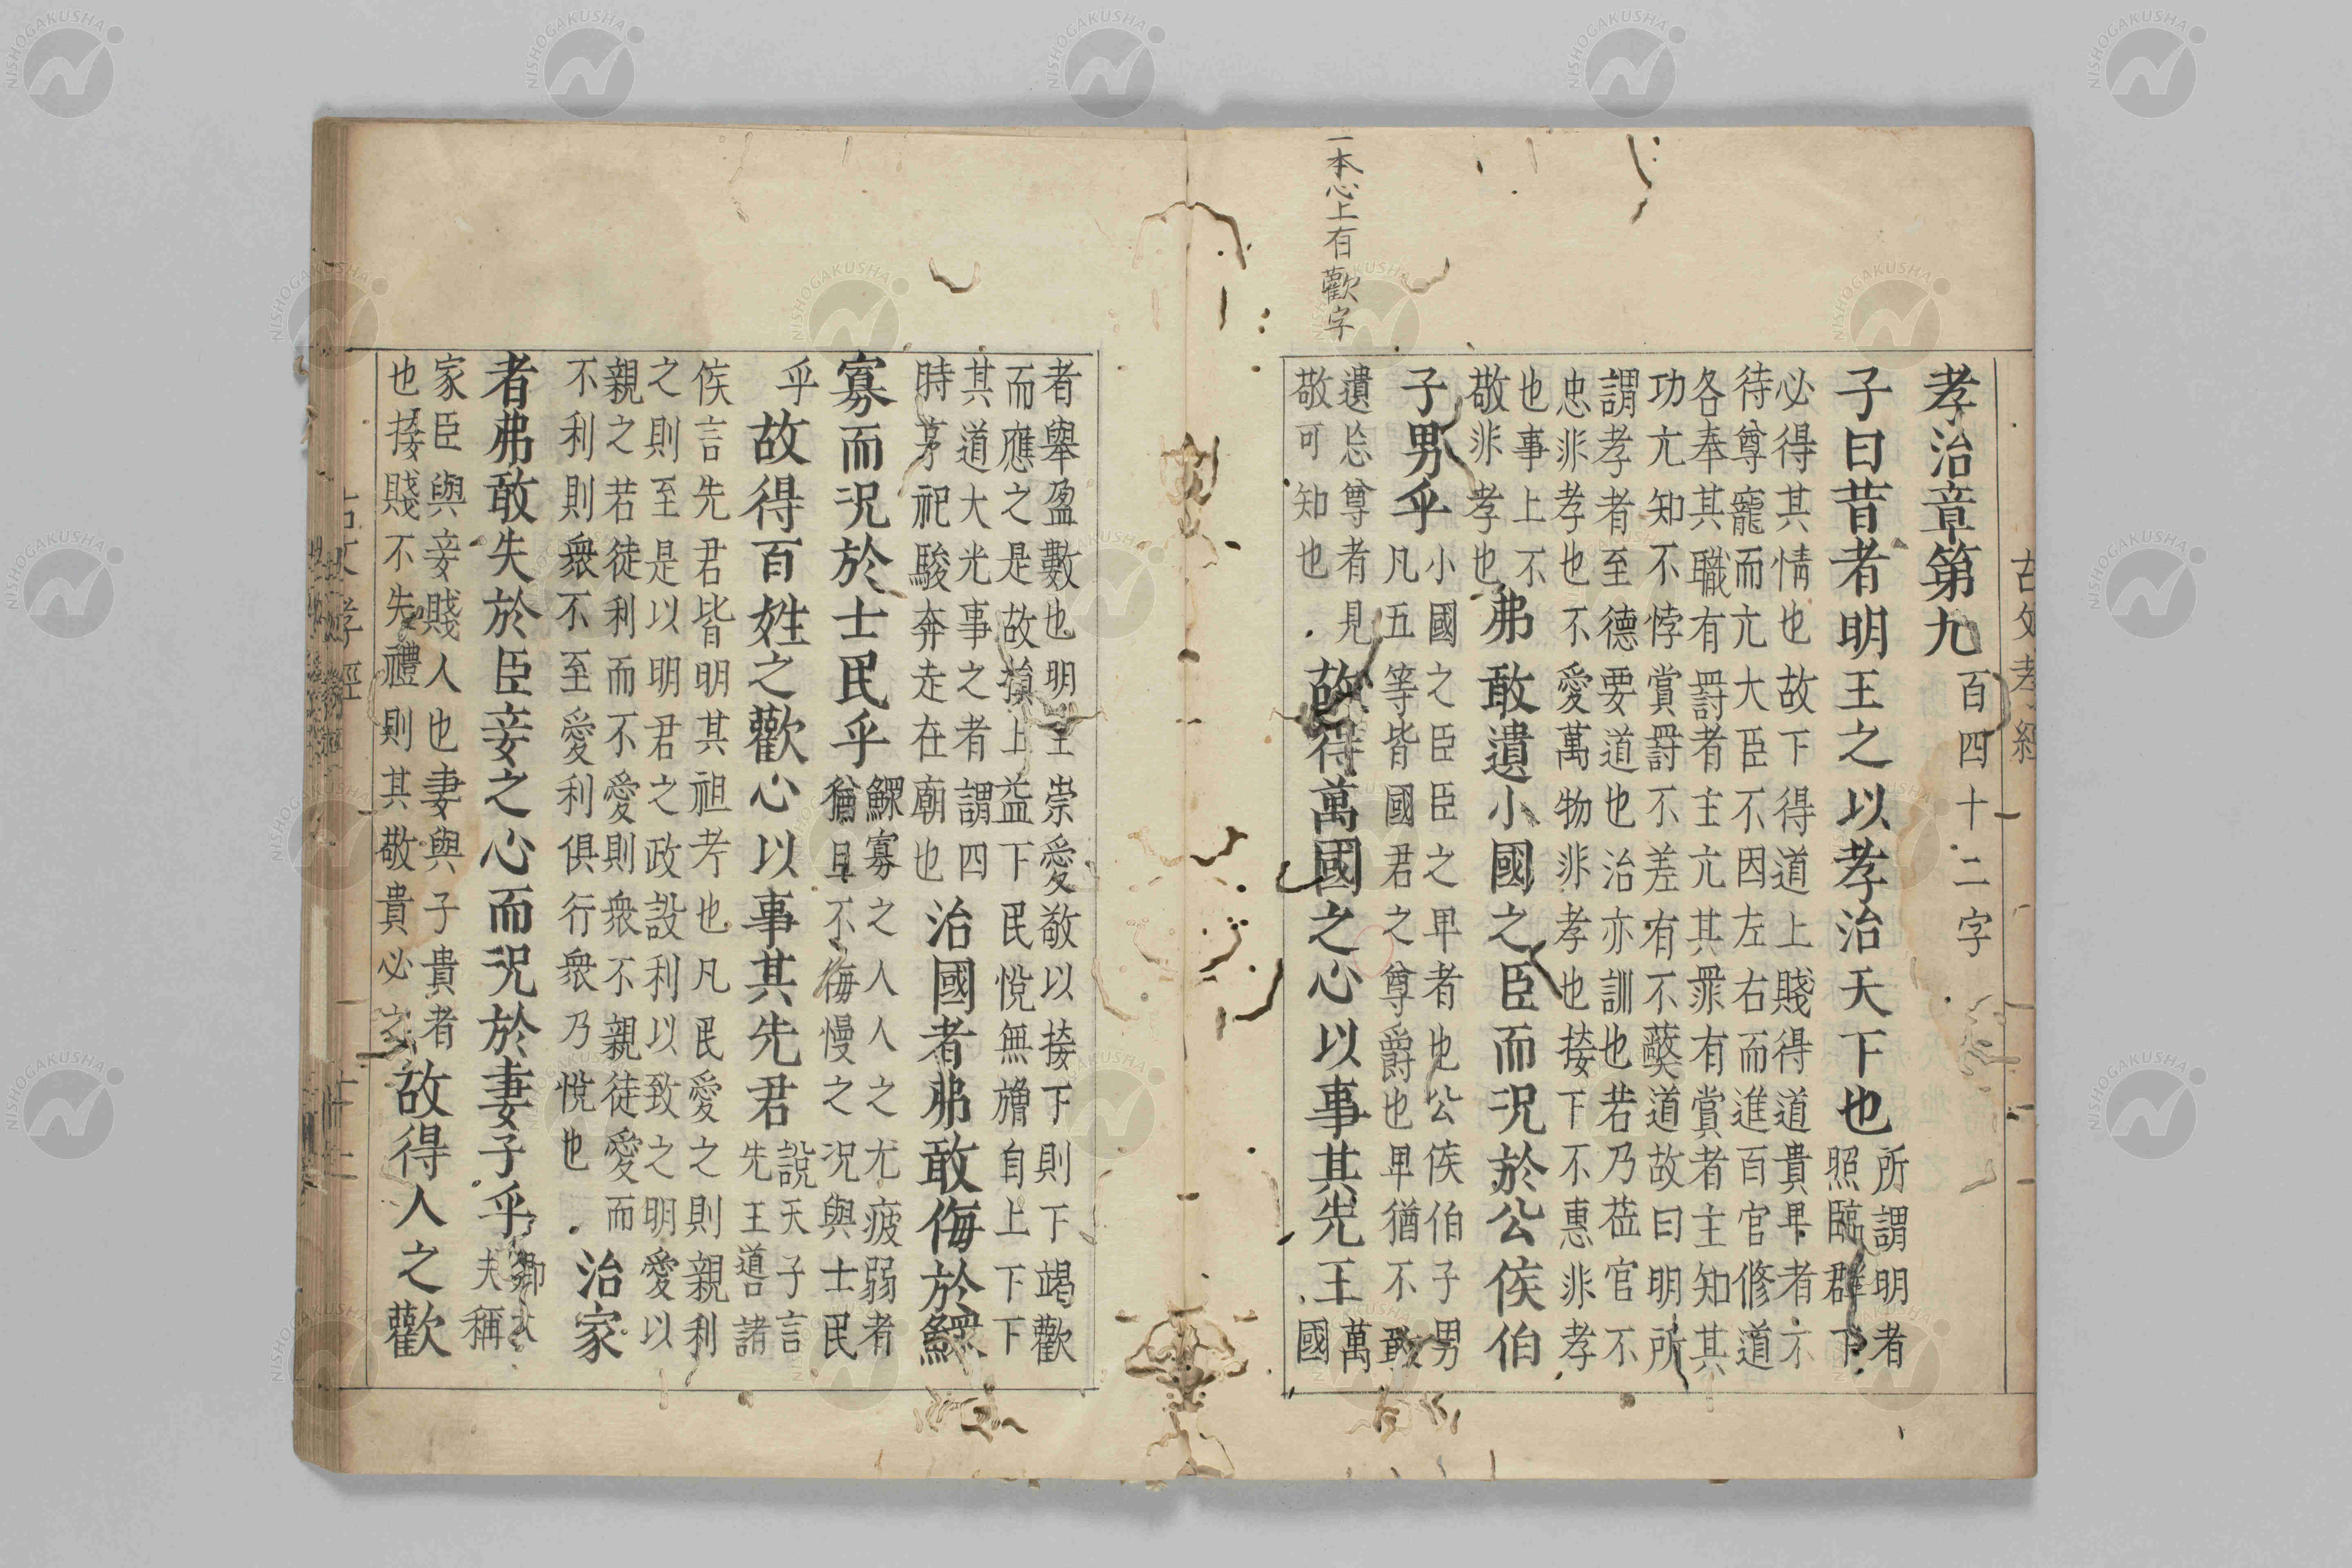 一本心上有歡字
古文孝經
孝治章第九 百四十二字
子曰昔者明王之以孝治天下也 所謂明者
照臨群下
必得其情也故下得道上賤得道貴卑者不
待尊寵而亢大臣不因左右而進百官修道
各奉其職有罰者主亢其罪有賞者主知其
功亢知不悖賞罰不差有不蔽道故曰明所
謂孝者至德要道也治亦訓也若乃莅官不
忠非孝也不愛萬物非孝也接下不惠非孝
也事上不
敬非孝也
弗敢遺小國之臣而況於公侯伯
子男乎
小國之臣臣之卑者也公侯伯子男
凡五等皆國君之尊爵也卑猶不敢
遺忘尊者見
敬可知也
故得萬國之心以事其先王
萬
國
者舉盈數也明王崇愛敬以接下則下竭歡
而應之是故損上益下民悅無疆自上下下
其道大光事之者謂四
時享祀駿奔走在廟也
治國者弗敢侮於鰥
寡而況於士民乎
鰥寡之人人之尤疲弱者
猶且不侮慢之況與士民
乎
故得百姓之歡心以事其先君
說天子言
先王道諸
侯言先君皆明其祖考也凡民愛之則親利
之則至是以明君之政設利以致之明愛以
親之若徒利而不愛則衆不親徒愛而
不利則衆不至愛利俱行衆乃悅也
治家
者弗敢失於臣妾之心而況於妻子乎
卿大
夫稱
家臣與妾賤人也妻與子貴者
也接賤不失禮則其敬貴必矣
故得人之歡
古文孝經
十二